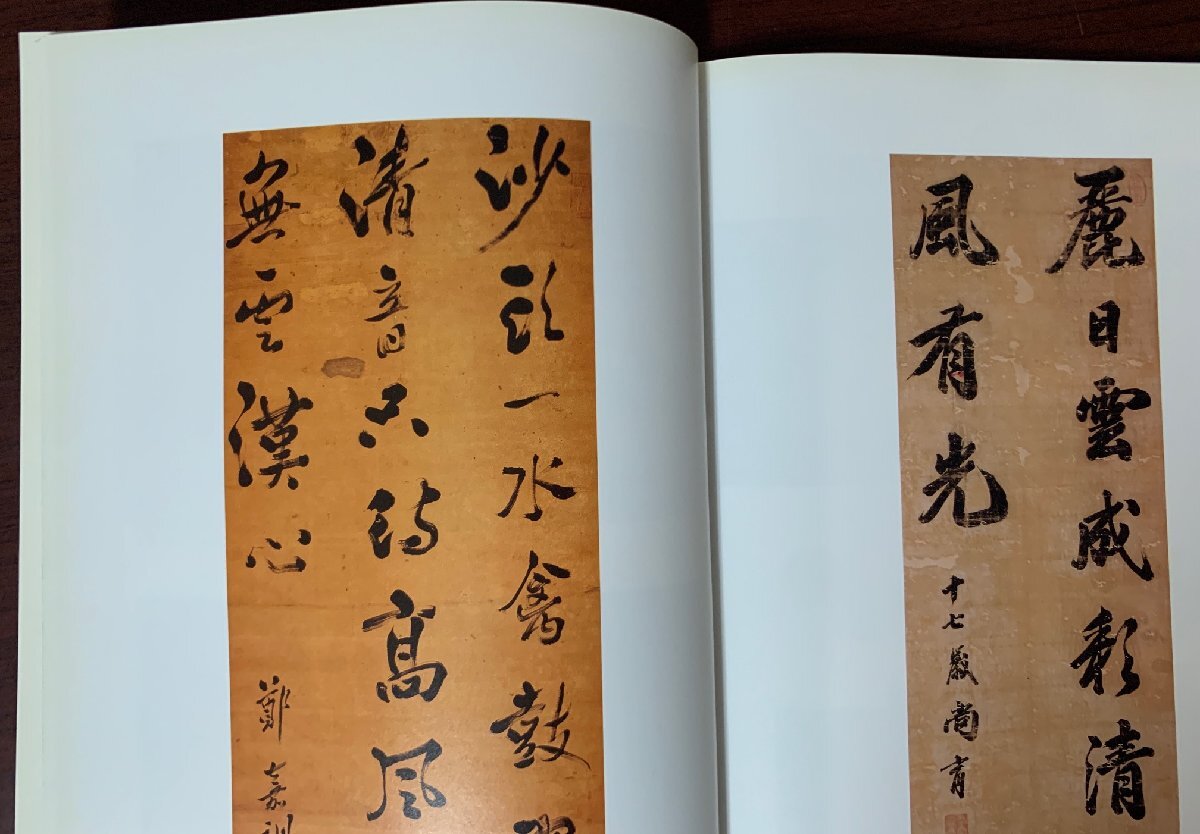 麗日雲成彩清
風有光
十七歲尚育
沙頭一水禽鼓
清音只待高風
無雲漢心
鄭嘉訓